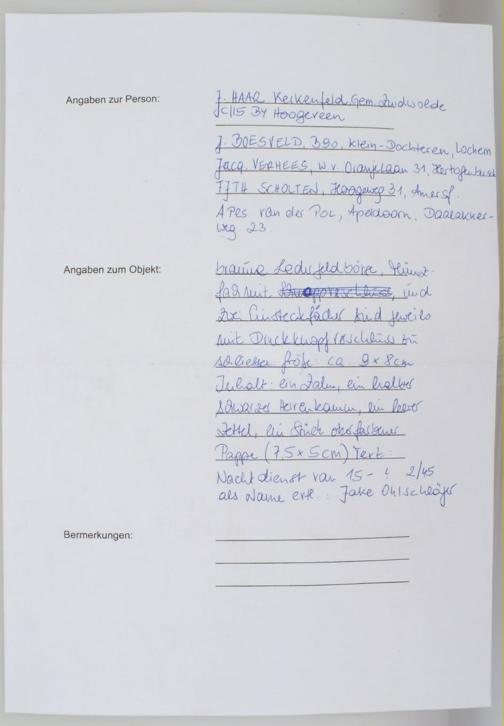 Angaben zur Person:
J. HAAR Kerkenfeld Gem. Zuidwolde
C/15 BY Hoogeveen
J. BOESVELD, B90, Klein-Dochteren, Lochem
Jacq. VERHEES, W.v. Oranjelaan 31, Hertogenbusch
SCHOLTEN, Hoogeweg 31, Amersf.
APes van der Pol, Apeldoorn, Daalakker-
weg 23
Angaben zum Objekt:
braune Ledergeldbörse, Münz-
fach mit und
zwei Einsteckfächer sind jeweils
mit Druckknopfverschluss zu
schliessen Größe: ca. 9 x 8cm
Inhalt: ein Zahn, ein halber
schwarzer Herrenkamm, ein leerer
Zettel, ein Stück ockerfarbener
Pappe (7,5 x 5cm) Text:
Nachtdienst van 15 - ! 2/45
als Name erk.: Jake Ohlschläger
Bermerkungen: